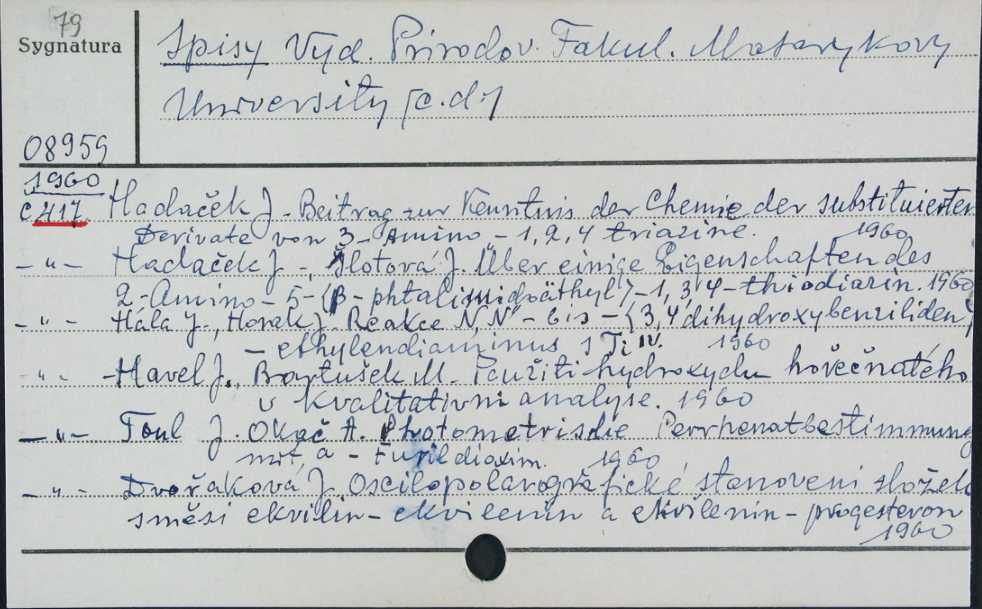 79
Sygnatura
Spisy Vyd. Prírodov. Fakul. Masarykovy
University [c.d.]
08959
1960
c. 417. Hadaček J. - Beitrag zur Kenntnis der Chemie der substituierten
Derivate von 3-Amino-1,2,4 triazine. 1960
- " - Hadaček J., Slotová J. Über einige Eigenschaften des
2-Amino-5-(β-phtalimidoäthyl)-1,3,4-thiodiazin. 1960
- " - Hála J., Horak J. Reakce N,N'-bis-(3,4 dihydroxybenziliden)
-ethylendiaminus s Ti IV. 1960
- " - Havel J., Bartušek M. Použiti hydroxydu hořečnatého
v kvalitativni analyse. 1960
- " - Toul J. Okač A. Photometrisdie Perrhenatbestimmung
mit α-Furildioxim. 1960
- " - Dvořaková J. Oscilopolarografické stanoveni složek
směsi ekvilin-ekvilenin a ekvilenin-progesteron
1960